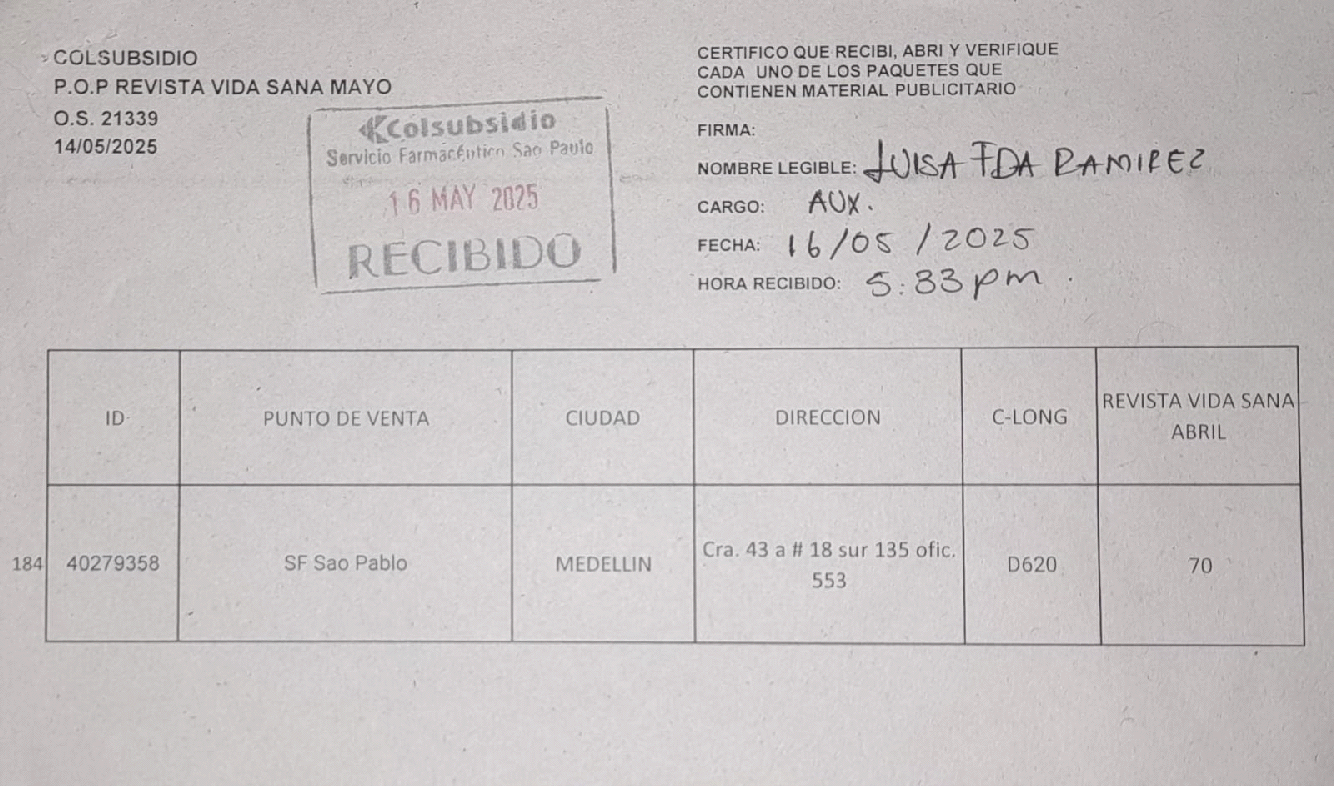 COLSUBSIDIO
P.O.P REVISTA VIDA SANA MAYO
O.S. 21339
14/05/2025
Colsubsidio
Servicio Farmacéutico Sao Paulo
16 MAY 2025
RECIBIDO
CERTIFICO QUE RECIBI, ABRI Y VERIFIQUE
CADA UNO DE LOS PAQUETES QUE
CONTIENEN MATERIAL PUBLICITARIO
FIRMA:
NOMBRE LEGIBLE: LUISA FDA RAMIREZ
CARGO: AUX.
FECHA: 16/05/2025
HORA RECIBIDO: 5:33 pm.
ID PUNTO DE VENTA CIUDAD DIRECCION C-LONG REVISTA VIDA SANA
ABRIL
184 40279358 SF Sao Pablo MEDELLIN Cra. 43 a # 18 sur 135 ofic. D620 70
553